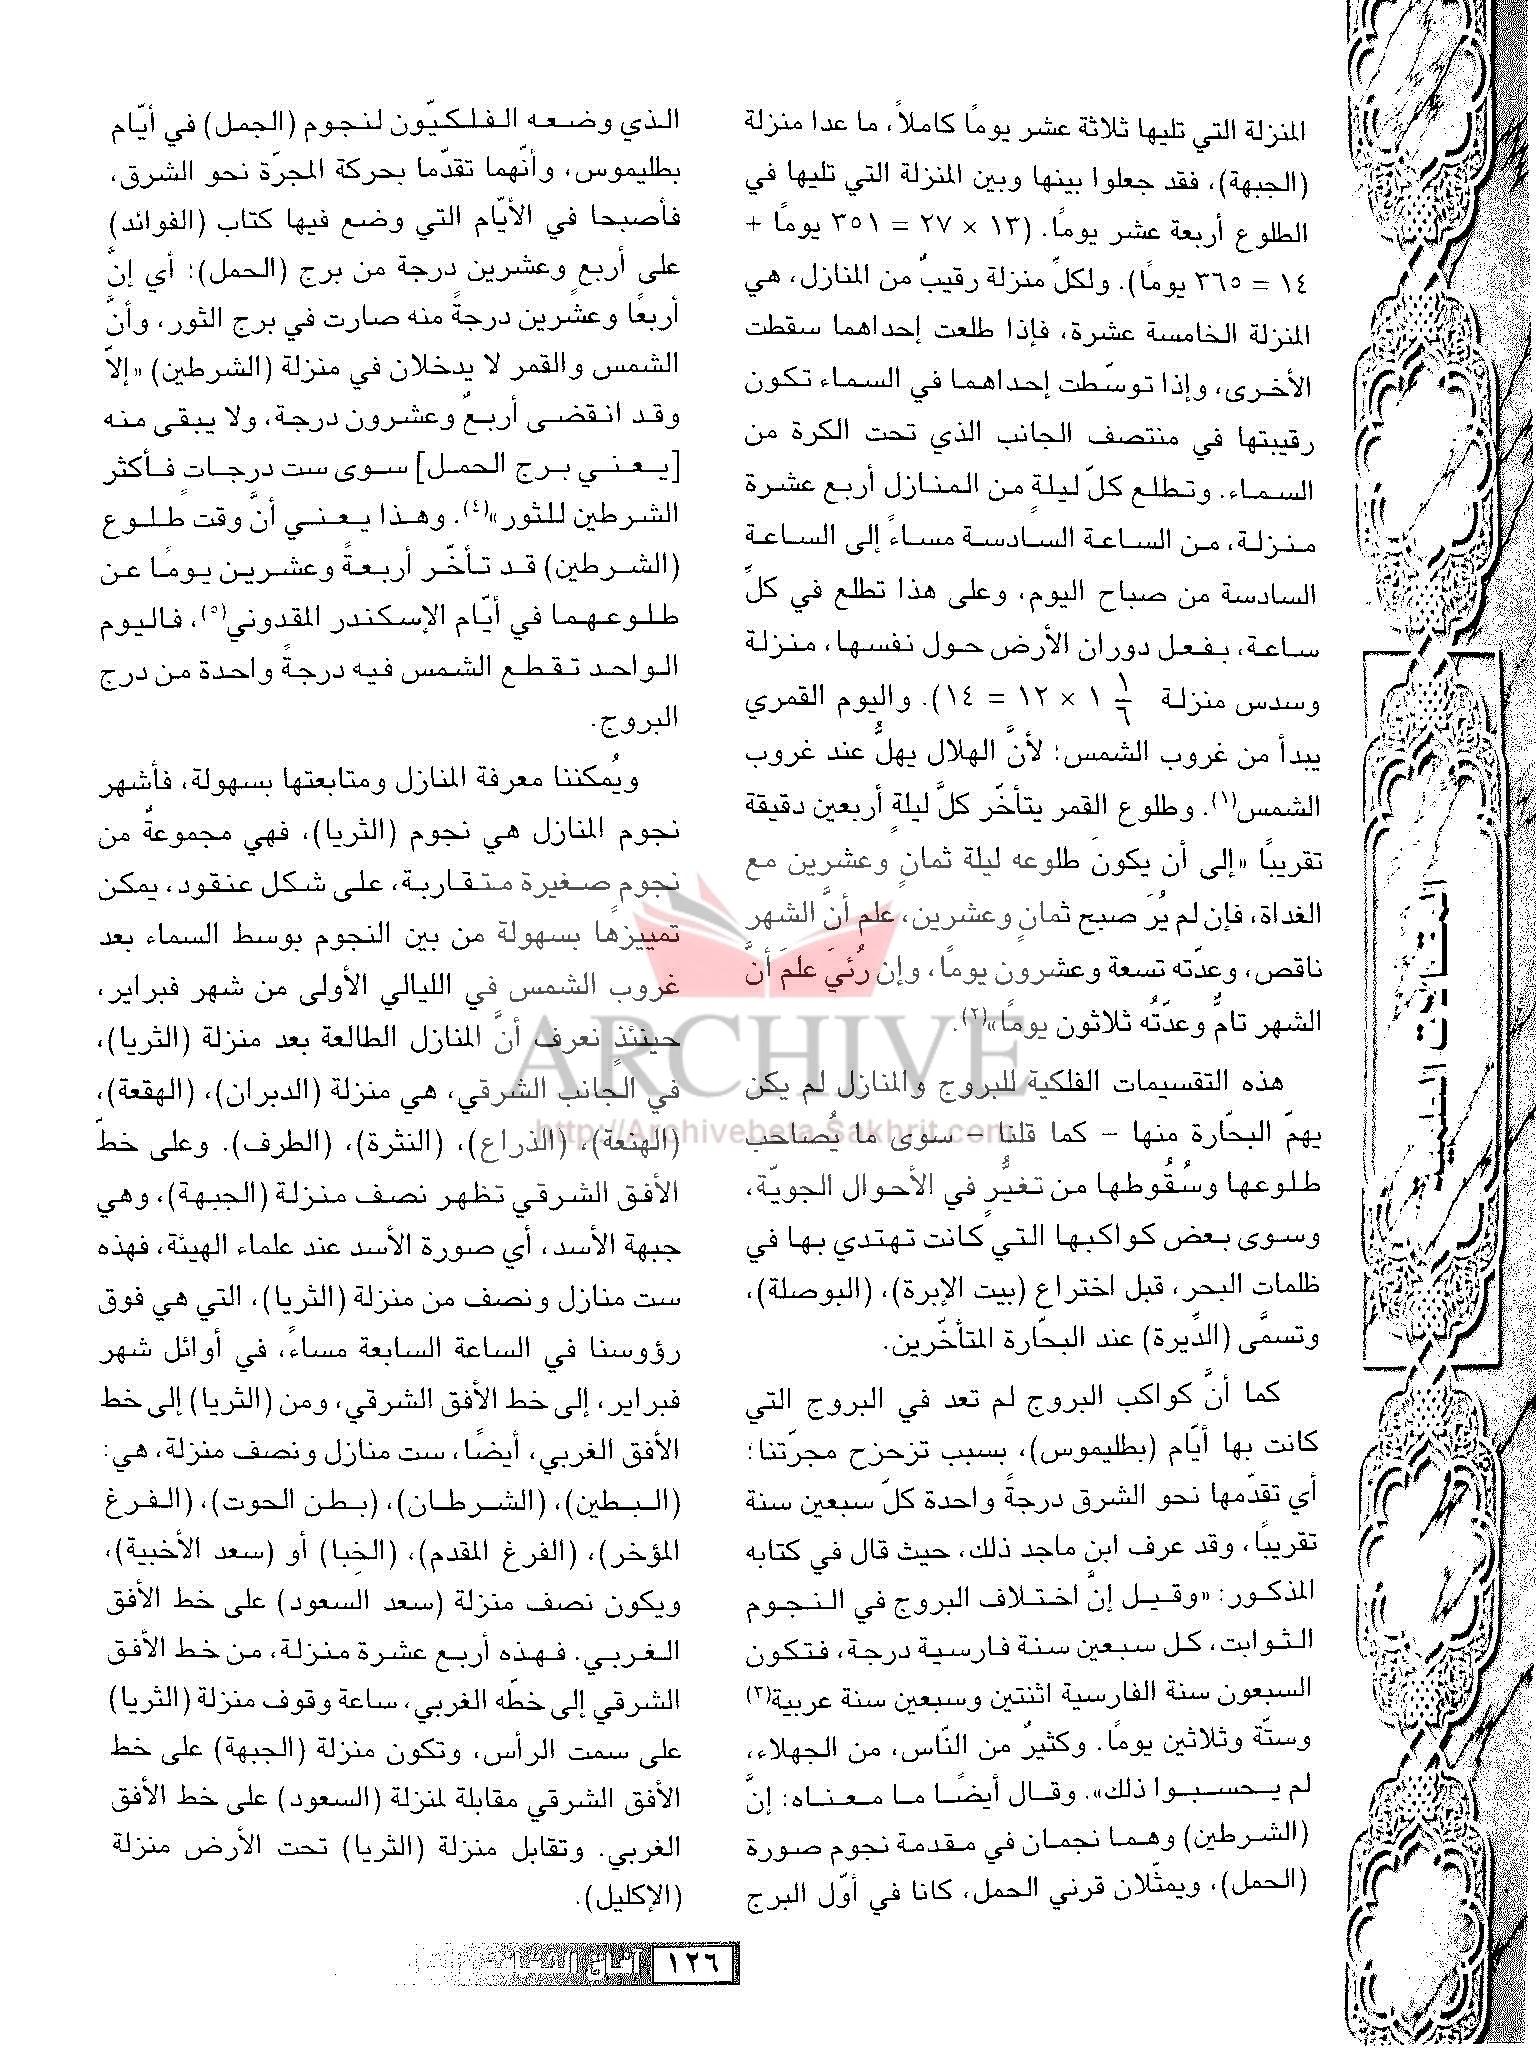 المنزلة التي تليها ثلاثة عشر يومًا كاملاً، ما عدا منزلة
(الجبهة)، فقد جعلوا بينها وبين المنزلة التي تليها في
الطلوع أربعة عشر يومًا. (١٣ × ٢٧ = ٣٥١ يومًا +
١٤ = ٣٦٥ يومًا). ولكلِّ منزلة رقيبٌ من المنازل، هي
المنزلة الخامسة عشرة، فإذا طلعت إحداهما سقطت
الأخرى، وإذا توسّطت إحداهما في السماء تكون
رقيبتها في منتصف الجانب الذي تحت الكرة من
السماء. وتطلع كلّ ليلةٍ من المنازل أربع عشرة
منزلة، من الساعة السادسة مساءً إلى الساعة
السادسة من صباح اليوم، وعلى هذا تطلع في كلِّ
ساعة، بفعل دوران الأرض حول نفسها، منزلة
وسدس منزلة ١/٦ ١ × ١٢ = ١٤). واليوم القمري
يبدأ من غروب الشمس؛ لأنَّ الهلال يهلُّ عند غروب
الشمس(١). وطلوع القمر يتأخّر كلَّ ليلةٍ أربعين دقيقة
تقريبًا «إلى أن يكونَ طلوعه ليلة ثمانٍ وعشرين مع
الغداة، فإن لم يُرَ صبح ثمانٍ وعشرين، علم أنَّ الشهر
ناقص، وعدّته تسعة وعشرون يومًا، وإن رُئيَ علمَ أنَّ
الشهر تامٌّ وعدّتُه ثلاثون يومًا»(٢).
هذه التقسيمات الفلكية للبروج والمنازل لم يكن
يهمّ البحّارة منها – كما قلنا – سوى ما يُصاحب
طلوعها وسُقُوطها من تغيُّرٍ في الأحوال الجويّة،
وسوى بعض كواكبها التي كانت تهتدي بها في
ظلمات البحر، قبل اختراع (بيت الإبرة)، (البوصلة)،
وتسمَّى (الدِّيرة) عند البحّارة المتأخّرين.
كما أنَّ كواكب البروج لم تعد في البروج التي
كانت بها أيّام (بطليموس)، بسبب تزحزح مجرّتنا؛
أي تقدّمها نحو الشرق درجةً واحدة كلّ سبعين سنة
تقريبًا، وقد عرف ابن ماجد ذلك، حيث قال في كتابه
المذكور: «وقيل إنَّ اختلاف البروج في النجوم
الثوابت، كل سبعين سنة فارسية درجة، فتكون
السبعون سنة الفارسية اثنتين وسبعين سنة عربية(٣)
وستّة وثلاثين يومًا. وكثيرٌ من النّاس، من الجهلاء،
لم يحسبوا ذلك». وقال أيضًا ما معناه: إنَّ
(الشرطين) وهما نجمان في مقدمة نجوم صورة
(الحمل)، ويمثّلان قرني الحمل، كانا في أوّل البرج
الذي وضعه الفلكيّون لنجوم (الجمل) في أيّام
بطليموس، وأنّهما تقدّما بحركة المجرّة نحو الشرق،
فأصبحا في الأيّام التي وضع فيها كتاب (الفوائد)
على أربعٍ وعشرين درجة من برج (الحمل)؛ أي إنَّ
أربعًا وعشرين درجةً منه صارت في برج الثور، وأنَّ
الشمس والقمر لا يدخلان في منزلة (الشرطين) «إلاّ
وقد انقضى أربعٌ وعشرون درجة، ولا يبقى منه
[يعني برج الحمل] سوى ست درجاتٍ فأكثر
الشرطين للثور»(٤). وهذا يعني أنَّ وقت طلوع
(الشرطين) قد تأخّر أربعةً وعشرين يومًا عن
طلوعهما في أيّام الإسكندر المقدوني(٥)، فاليوم
الواحد تقطع الشمس فيه درجةً واحدة من درج
البروج.
ويُمكننا معرفة المنازل ومتابعتها بسهولة، فأشهر
نجوم المنازل هي نجوم (الثريا)، فهي مجموعةٌ من
نجومٍ صغيرة متقاربة، على شكل عنقود، يمكن
تمييزها بسهولة من بين النجوم بوسط السماء بعد
غروب الشمس في الليالي الأولى من شهر فبراير،
حينئذٍ نعرف أنَّ المنازل الطالعة بعد منزلة (الثريا)،
في الجانب الشرقي، هي منزلة (الدبران)، (الهقعة)،
(الهنعة)، (الذراع)، (النثرة)، (الطرف). وعلى خطّ
الأفق الشرقي تظهر نصف منزلة (الجبهة)، وهي
جبهة الأسد، أي صورة الأسد عند علماء الهيئة، فهذه
ست منازل ونصف من منزلة (الثريا)، التي هي فوق
رؤوسنا في الساعة السابعة مساءً، في أوائل شهر
فبراير، إلى خط الأفق الشرقي، ومن (الثريا) إلى خط
الأفق الغربي، أيضًا، ست منازل ونصف منزلة، هي:
(البطين)، (الشرطان)، (بطن الحوت)، (الفرغ
المؤخر)، (الفرغ المقدم)، (الخِبا) أو (سعد الأخبية)،
ويكون نصف منزلة (سعد السعود) على خط الأفق
الغربي. فهذه أربع عشرة منزلة، من خط الأفق
الشرقي إلى خطّه الغربي، ساعة وقوف منزلة (الثريا)
على سمت الرأس، وتكون منزلة (الجبهة) على خط
الأفق الشرقي مقابلة لمنزلة (السعود) على خط الأفق
الغربي. وتقابل منزلة (الثريا) تحت الأرض منزلة
(الإكليل).
ARCHIVE
http://Archivebeta.Sakhrit.com
١٢٦